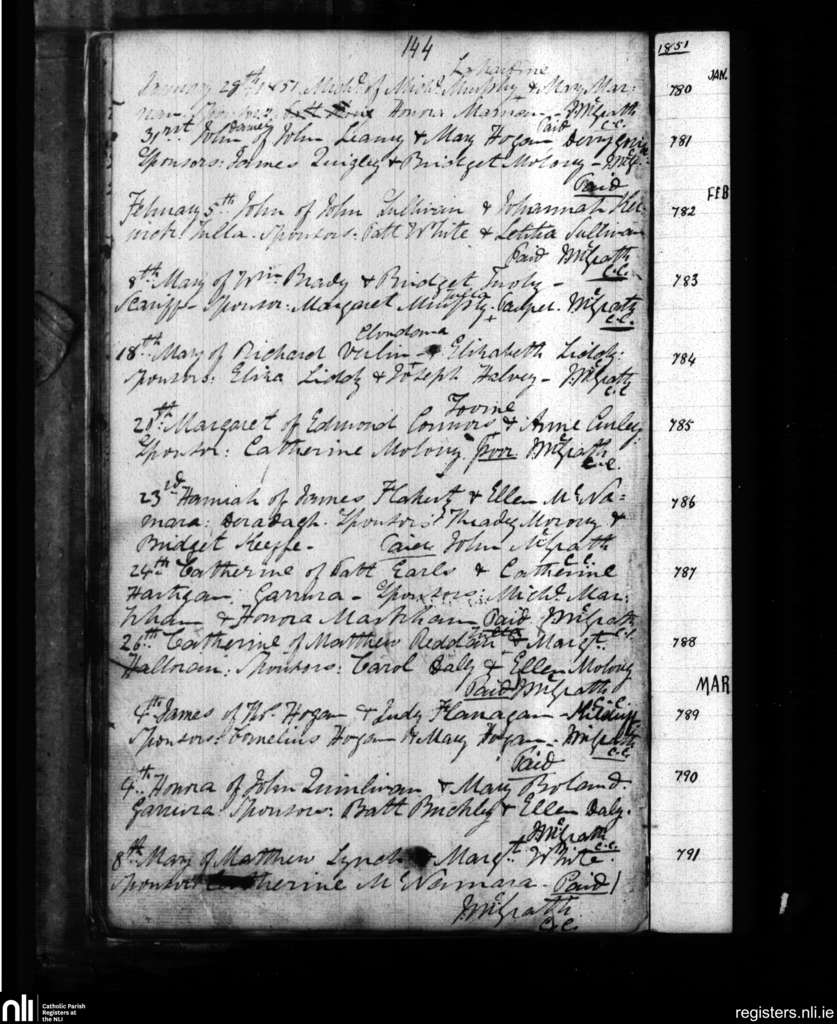 144
1851
January 28th 1851. Michl. of Michl. Murphy & Mary Mar-
780
JAN.
Sponsors: Honora Marnan - McGrath
C.C.
31rst John of John Leamy & Mary Hogan Paid
781
Sponsors: James Quigley & Bridget Molony -
Paid
FEB
February 5th. John of John Sullivan & Johannah
782
Tulla. Sponsors: Patt White & Letitia Sullivan
Paid McGrath
C.C.
8th. Mary of Wm. Brady & Bridget
783
Scariff - Sponsor: Margaret Murphy. Pauper. McGrath
C.C.
18th. Mary of Richard & Elizabeth Liddy.
784
Sponsors: Eliza Liddy & Joseph Halvey - McGrath
C.C.
Margaret of Edmond Connors & Anne Curley.
785
Sponsor: Catherine Molony. poor McGrath
C.C.
23rd Hanniah of James Flahert & Ellen McNa-
786
mara: Deradagh. Sponsors: Thady Morony &
Bridget Keeffe - Paid John McGrath
C.C.
24th Catherine of Patt Earls & Catherine
787
Hartigan: Garrura - Sponsors: Michl. Mar-
& Honora Markham Paid McGrath
C.C.
26th Catherine of Matthew Reddan & Margt.
788
Halloran: Sponsors: Carol Daly & Ellen Molony
Paid McGrath
C.C.
MAR
4th James of Hogan & Judy Flanagan -
789
Sponsors: Cornelius Hogan & Mary Hogan - McGrath
C.C.
Paid
4th. Honora of John Quinlivan & Mary Boland.
790
Garrura Sponsors: Batt Buckley & Ellen Daly.
McGrath
C.C.
8th. Mary of Matthew Lynch & Margt. White.
791
Sponsor Catherine McNamara - Paid
McGrath
C.C.
nli
Catholic Parish
Registers at
the NLI
registers.nli.ie